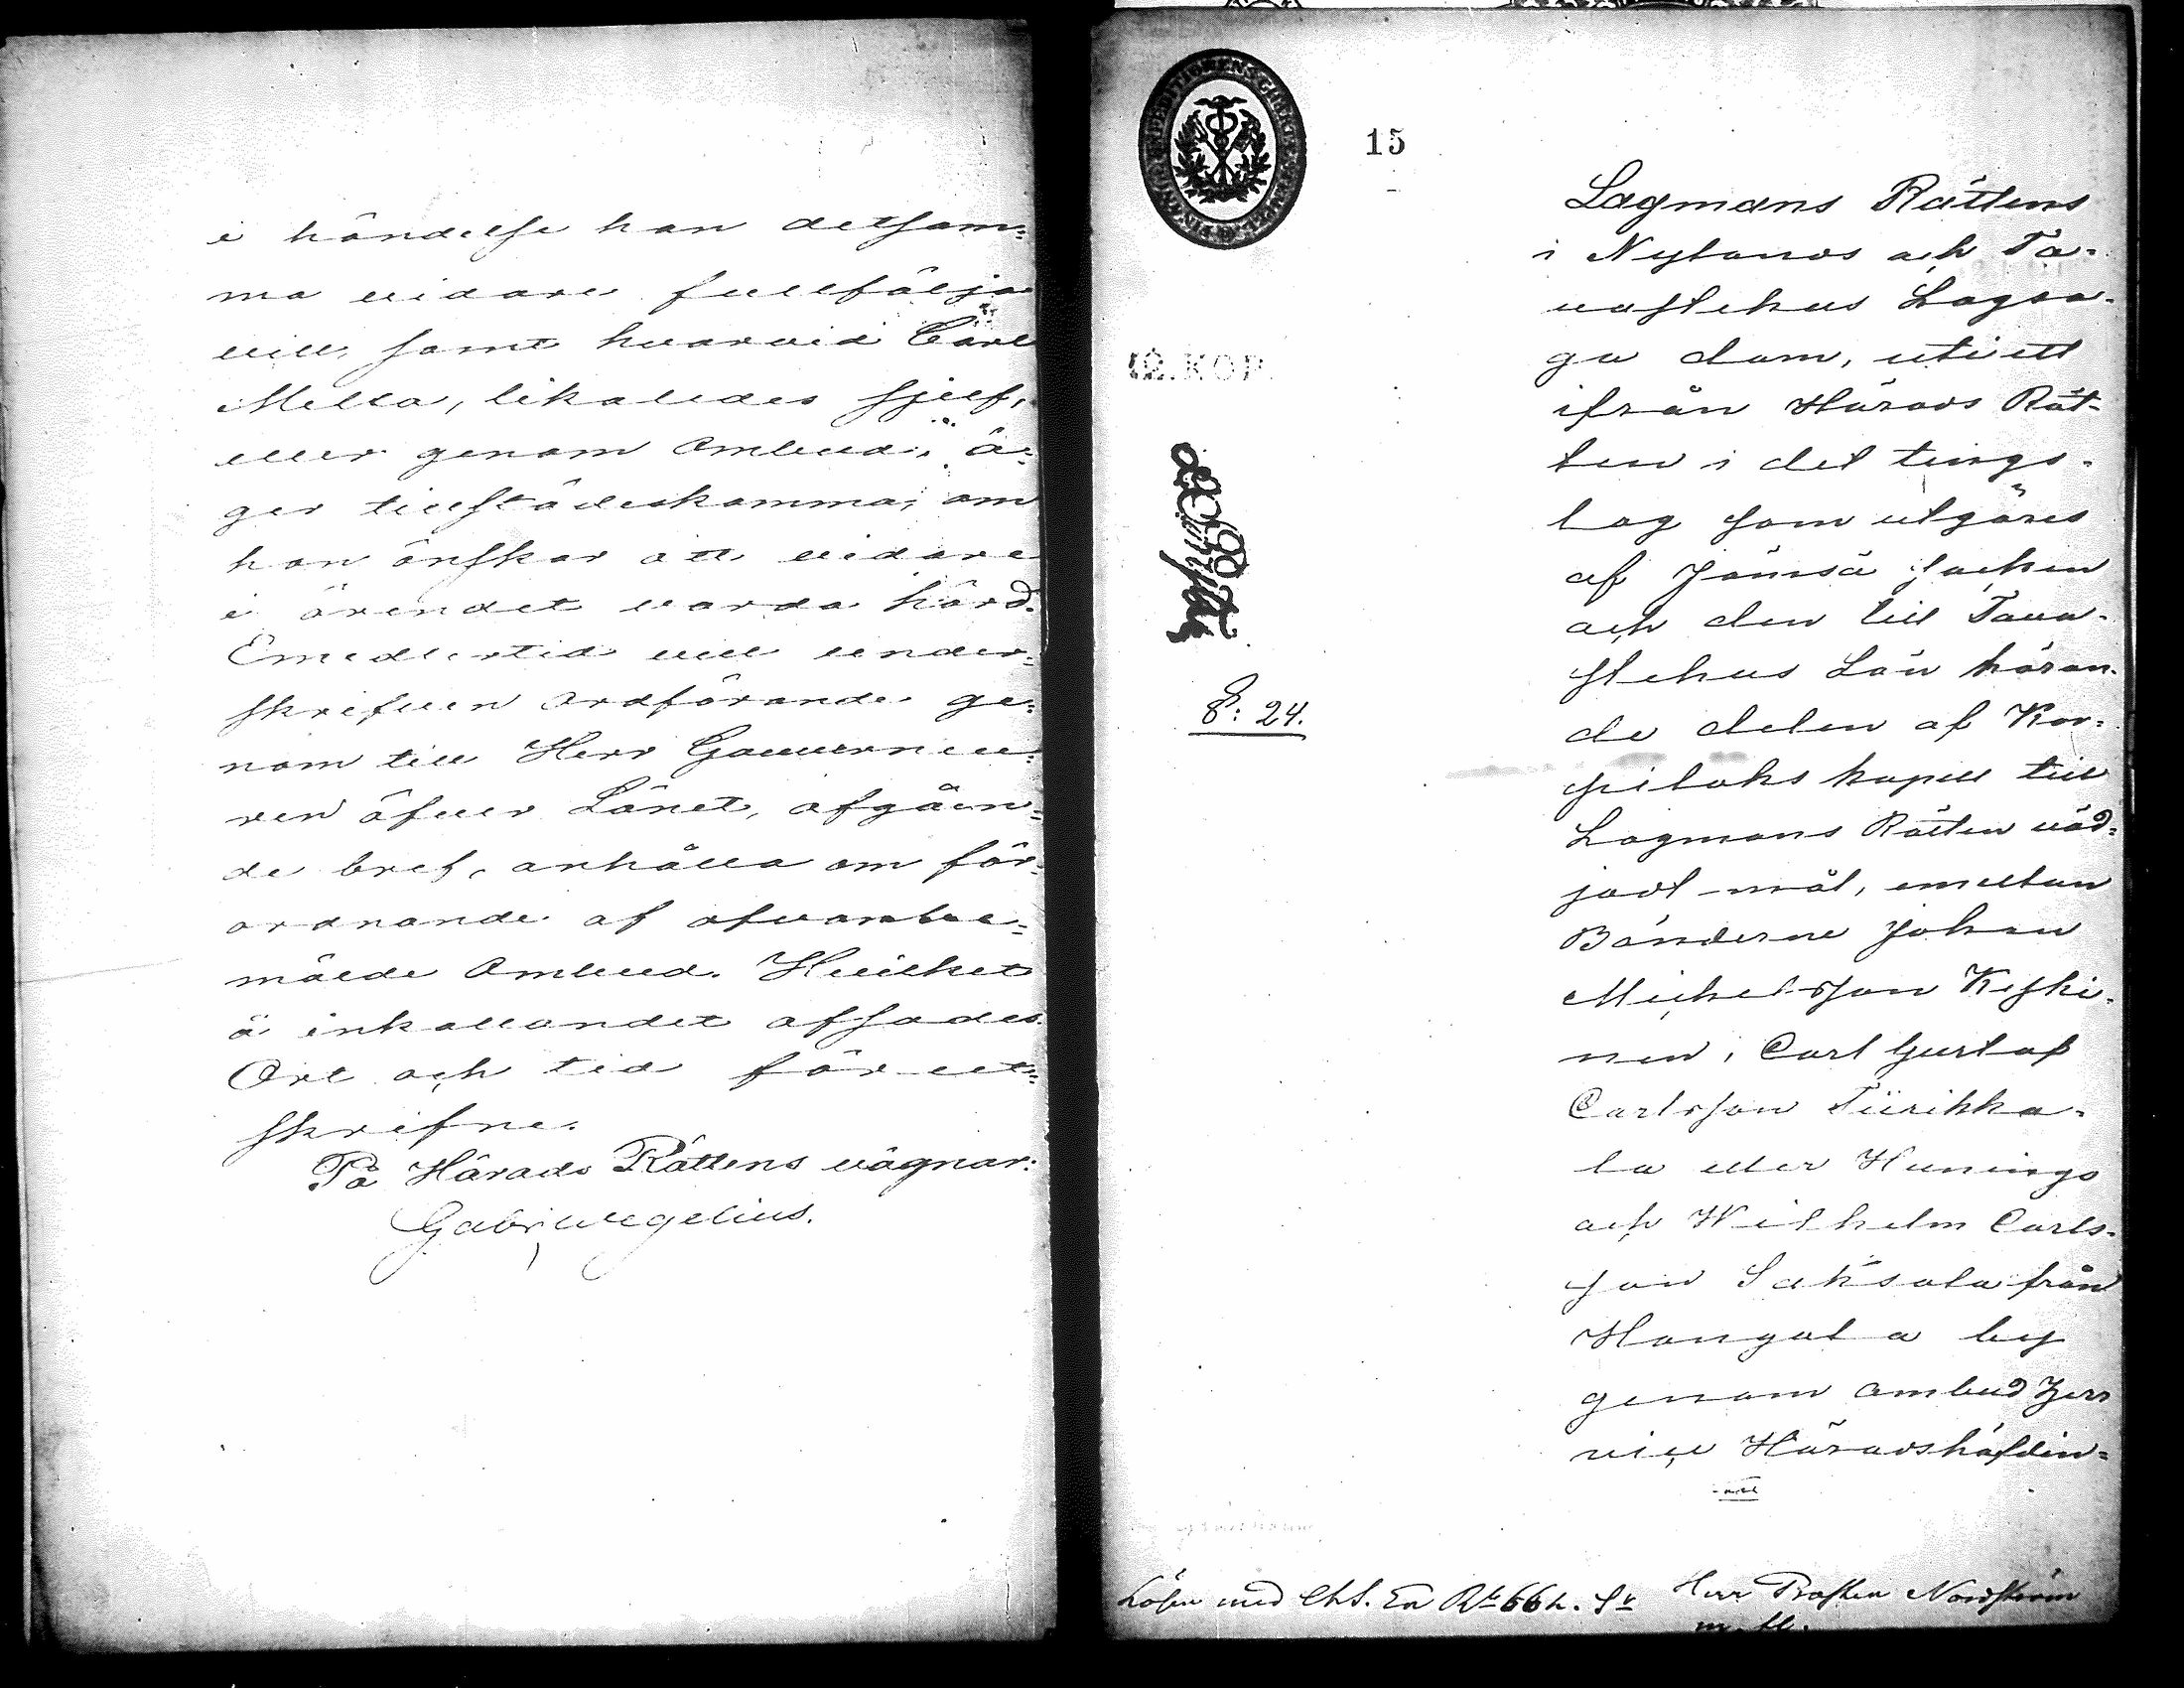 i händelse han detsam=
ma vidare fullfölja
vill, samt hvarvid Carl
Mella, likaledes sjelf,
eller genom Ombud, ä=
ger tillstädeskomma, om
han önskar att vidare
i ärendet varda hörd.
Emedlertid vill under=
skrifven Ordförande ge=
nom till Herr Gouverneu=
ren öfver Länet, afgåen=
de bref, anhålla om för=
ordnande af ofvanbe=
mälde Ombud. Hvilket
å inkallandet afsades.
Ort och tid förut=
skrifne.
På Härads Rättens vägnar:
Gabr Wegelius.
15
Lagmans Rättens
i Nylands och Ta-
vastehus Lagsa-
gu dom, uti ett
ifrån Härads Rät-
ten i det tings-
lag som utgöres
af Jämsä Socken
och den till Tava-
stehus Län höran-
de delen af Kor=
pilaks kapell till
Lagmans Rätten väd=
jadt mål, emellan
Bönderne Johan
Michelsson Keski-
nen, Carl Gustaf
Carlsson Tiirikka-
la eller Hunings
och Wilhelm Carls-
son Saksala från
Hangala by
genom ombud Herr
vice Häradshöfdin=
12. KOP.
8: 24.
Lösen med Chs. En Rb. 66 k. Sr
Herr Prosten Nordström